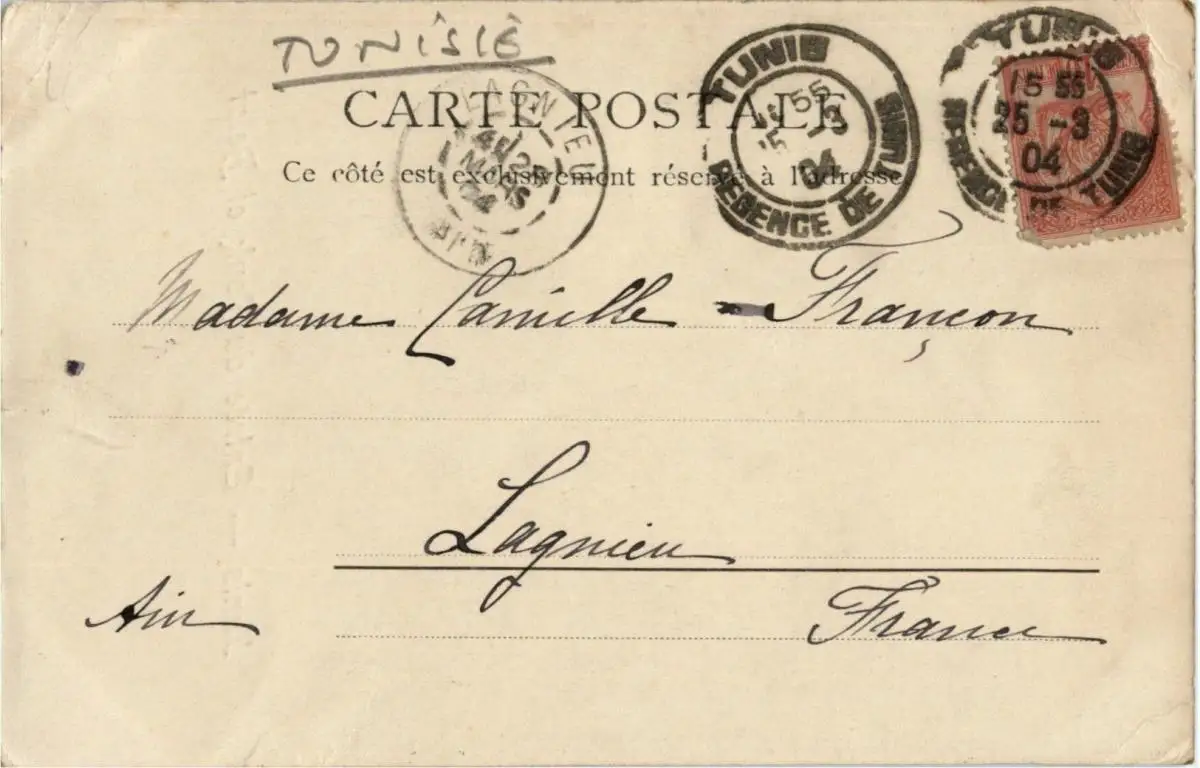 TUNISIE
CARTE POSTALE
Ce côté est exclusivement réservé à l'adresse
LAGNIEU
AIN
TUNIS
15 55
04
REGENCE DE TUNIS
TUNIS
15 55
25 -3
04
REGENCE DE TUNIS
Madame Camille Françon
Lagnieu
Ain
France